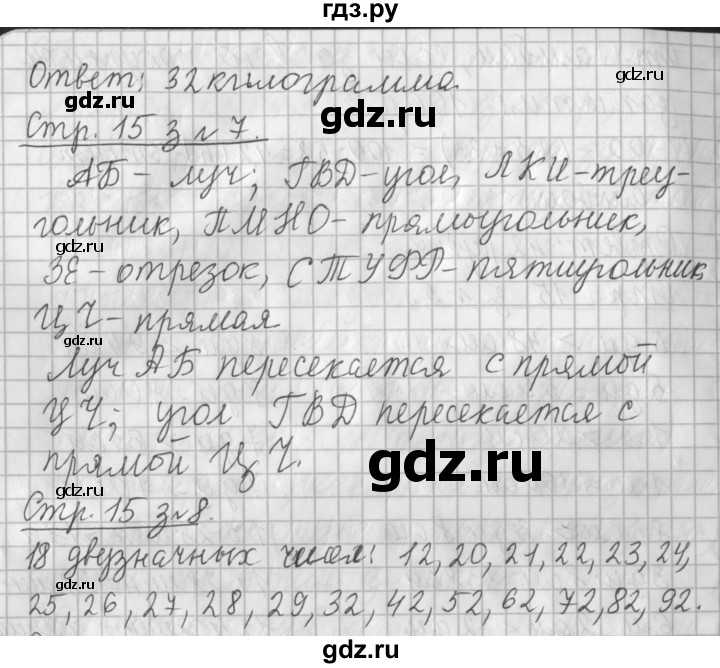 гдз.ру
Ответ: 32 килограмма.
gdz.ru
gdz.ru
gdz.ru
Стр. 15 з № 7.
АБ - луч; ГВД - угол, ЛКИ - треу-
гольник, ПМНО - прямоугольник,
gdz.ru
gdz.ru
ЗЕ - отрезок, СТУФР - пятиугольник
ЦЧ - прямая
gdz.ru
gdz.ru
Луч АБ пересекается с прямой
ЦЧ; угол ГВД пересекается с
gdz.ru
прямой ЦЧ.
gdz.ru
gdz.ru
gdz.ru
Стр. 15 з № 8.
18 двузначных чисел: 12, 20, 21, 22, 23, 24,
gdz.ru
gdz.ru
25, 26, 27, 28, 29, 32, 42, 52, 62, 72, 82, 92.
gdz.ru